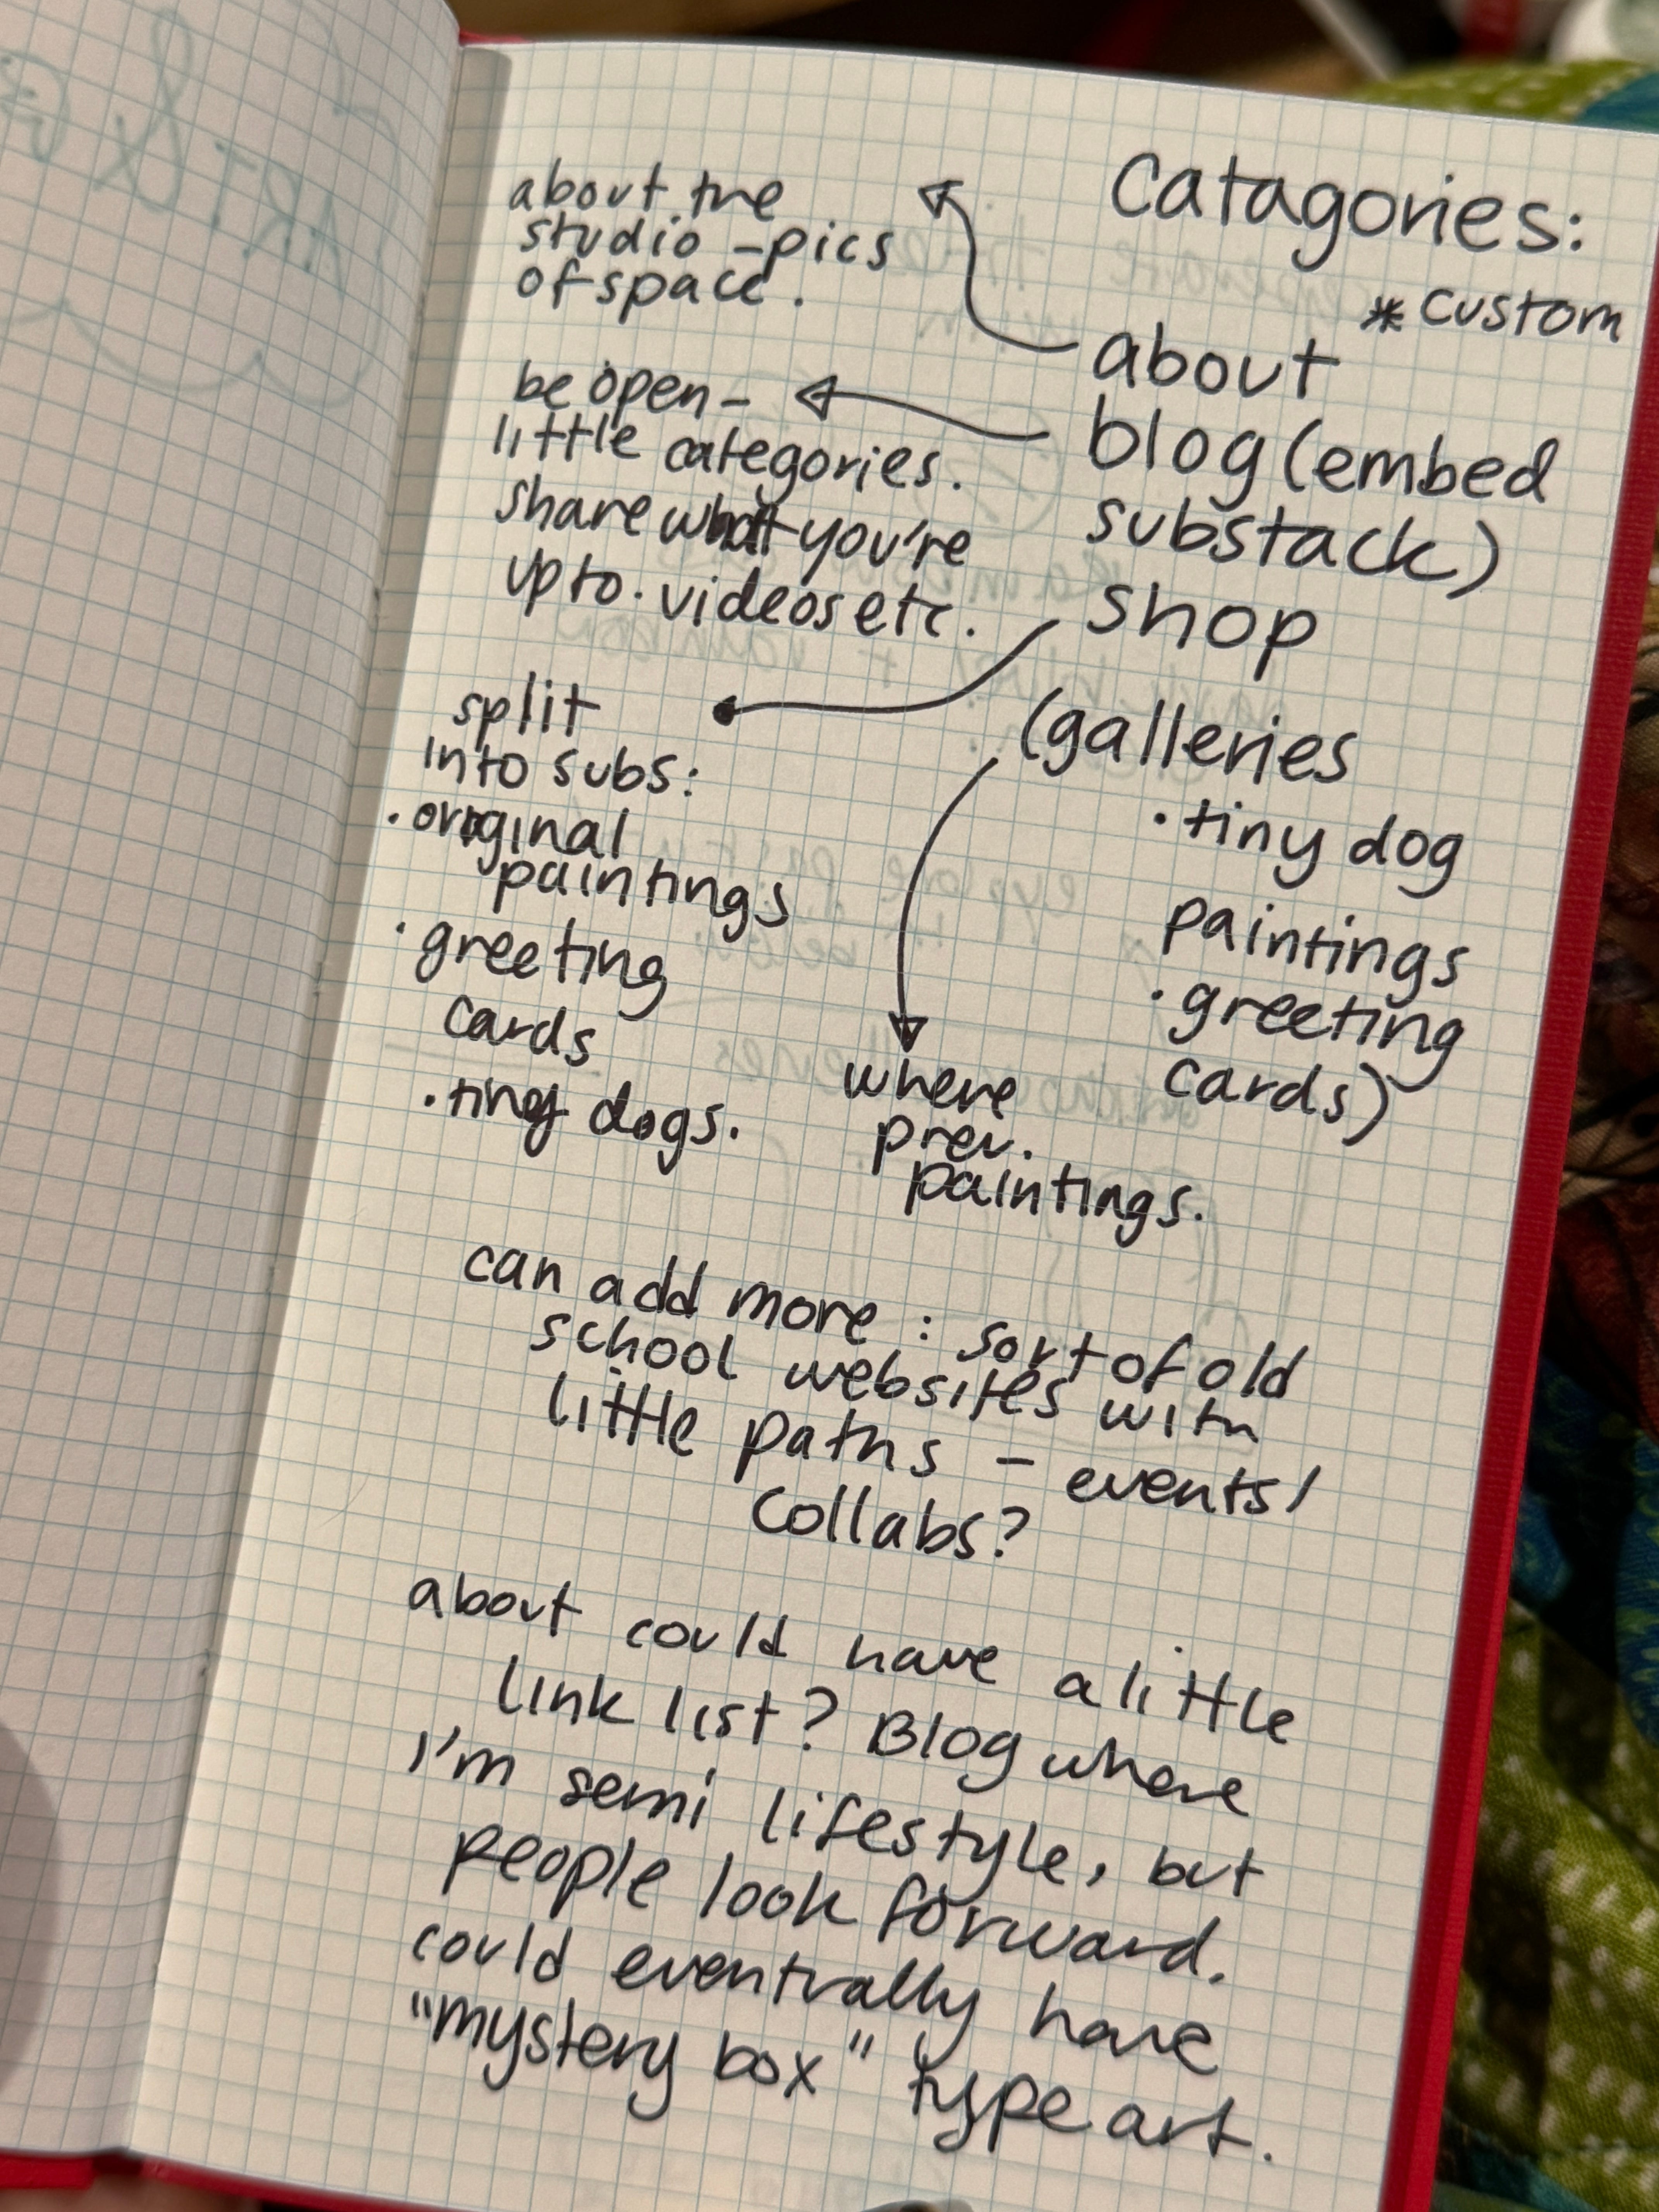 Catagories:
* custom
about
blog (embed
substack)
shop
(galleries
· tiny dog
paintings
· greeting
cards)
about the
studio - pics
of space.
be open -
little categories.
share what you're
up to. videos etc.
split
into subs:
· original
paintings
· greeting
cards
· tiny dogs.
where
prev.
paintings.
can add more: sort of old
school websites with
little paths - events/
collabs?
about could have a little
link list? Blog where
I'm semi lifestyle, but
people look forward.
could eventually have
"mystery box" type art.
ART &